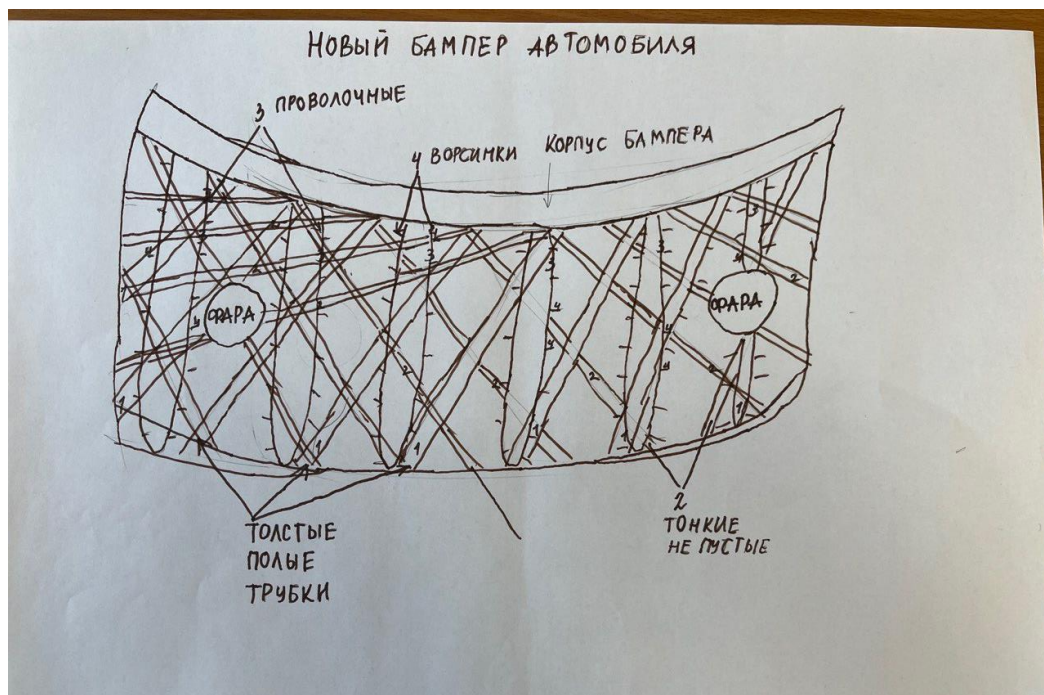 НОВЫЙ БАМПЕР АВТОМОБИЛЯ
3 ПРОВОЛОЧНЫЕ
4 ВОРСИНКИ
КОРПУС БАМПЕРА
ФАРА
ФАРА
ТОЛСТЫЕ
ПОЛЫЕ
ТРУБКИ
2
ТОНКИЕ
НЕ ПУСТЫЕ